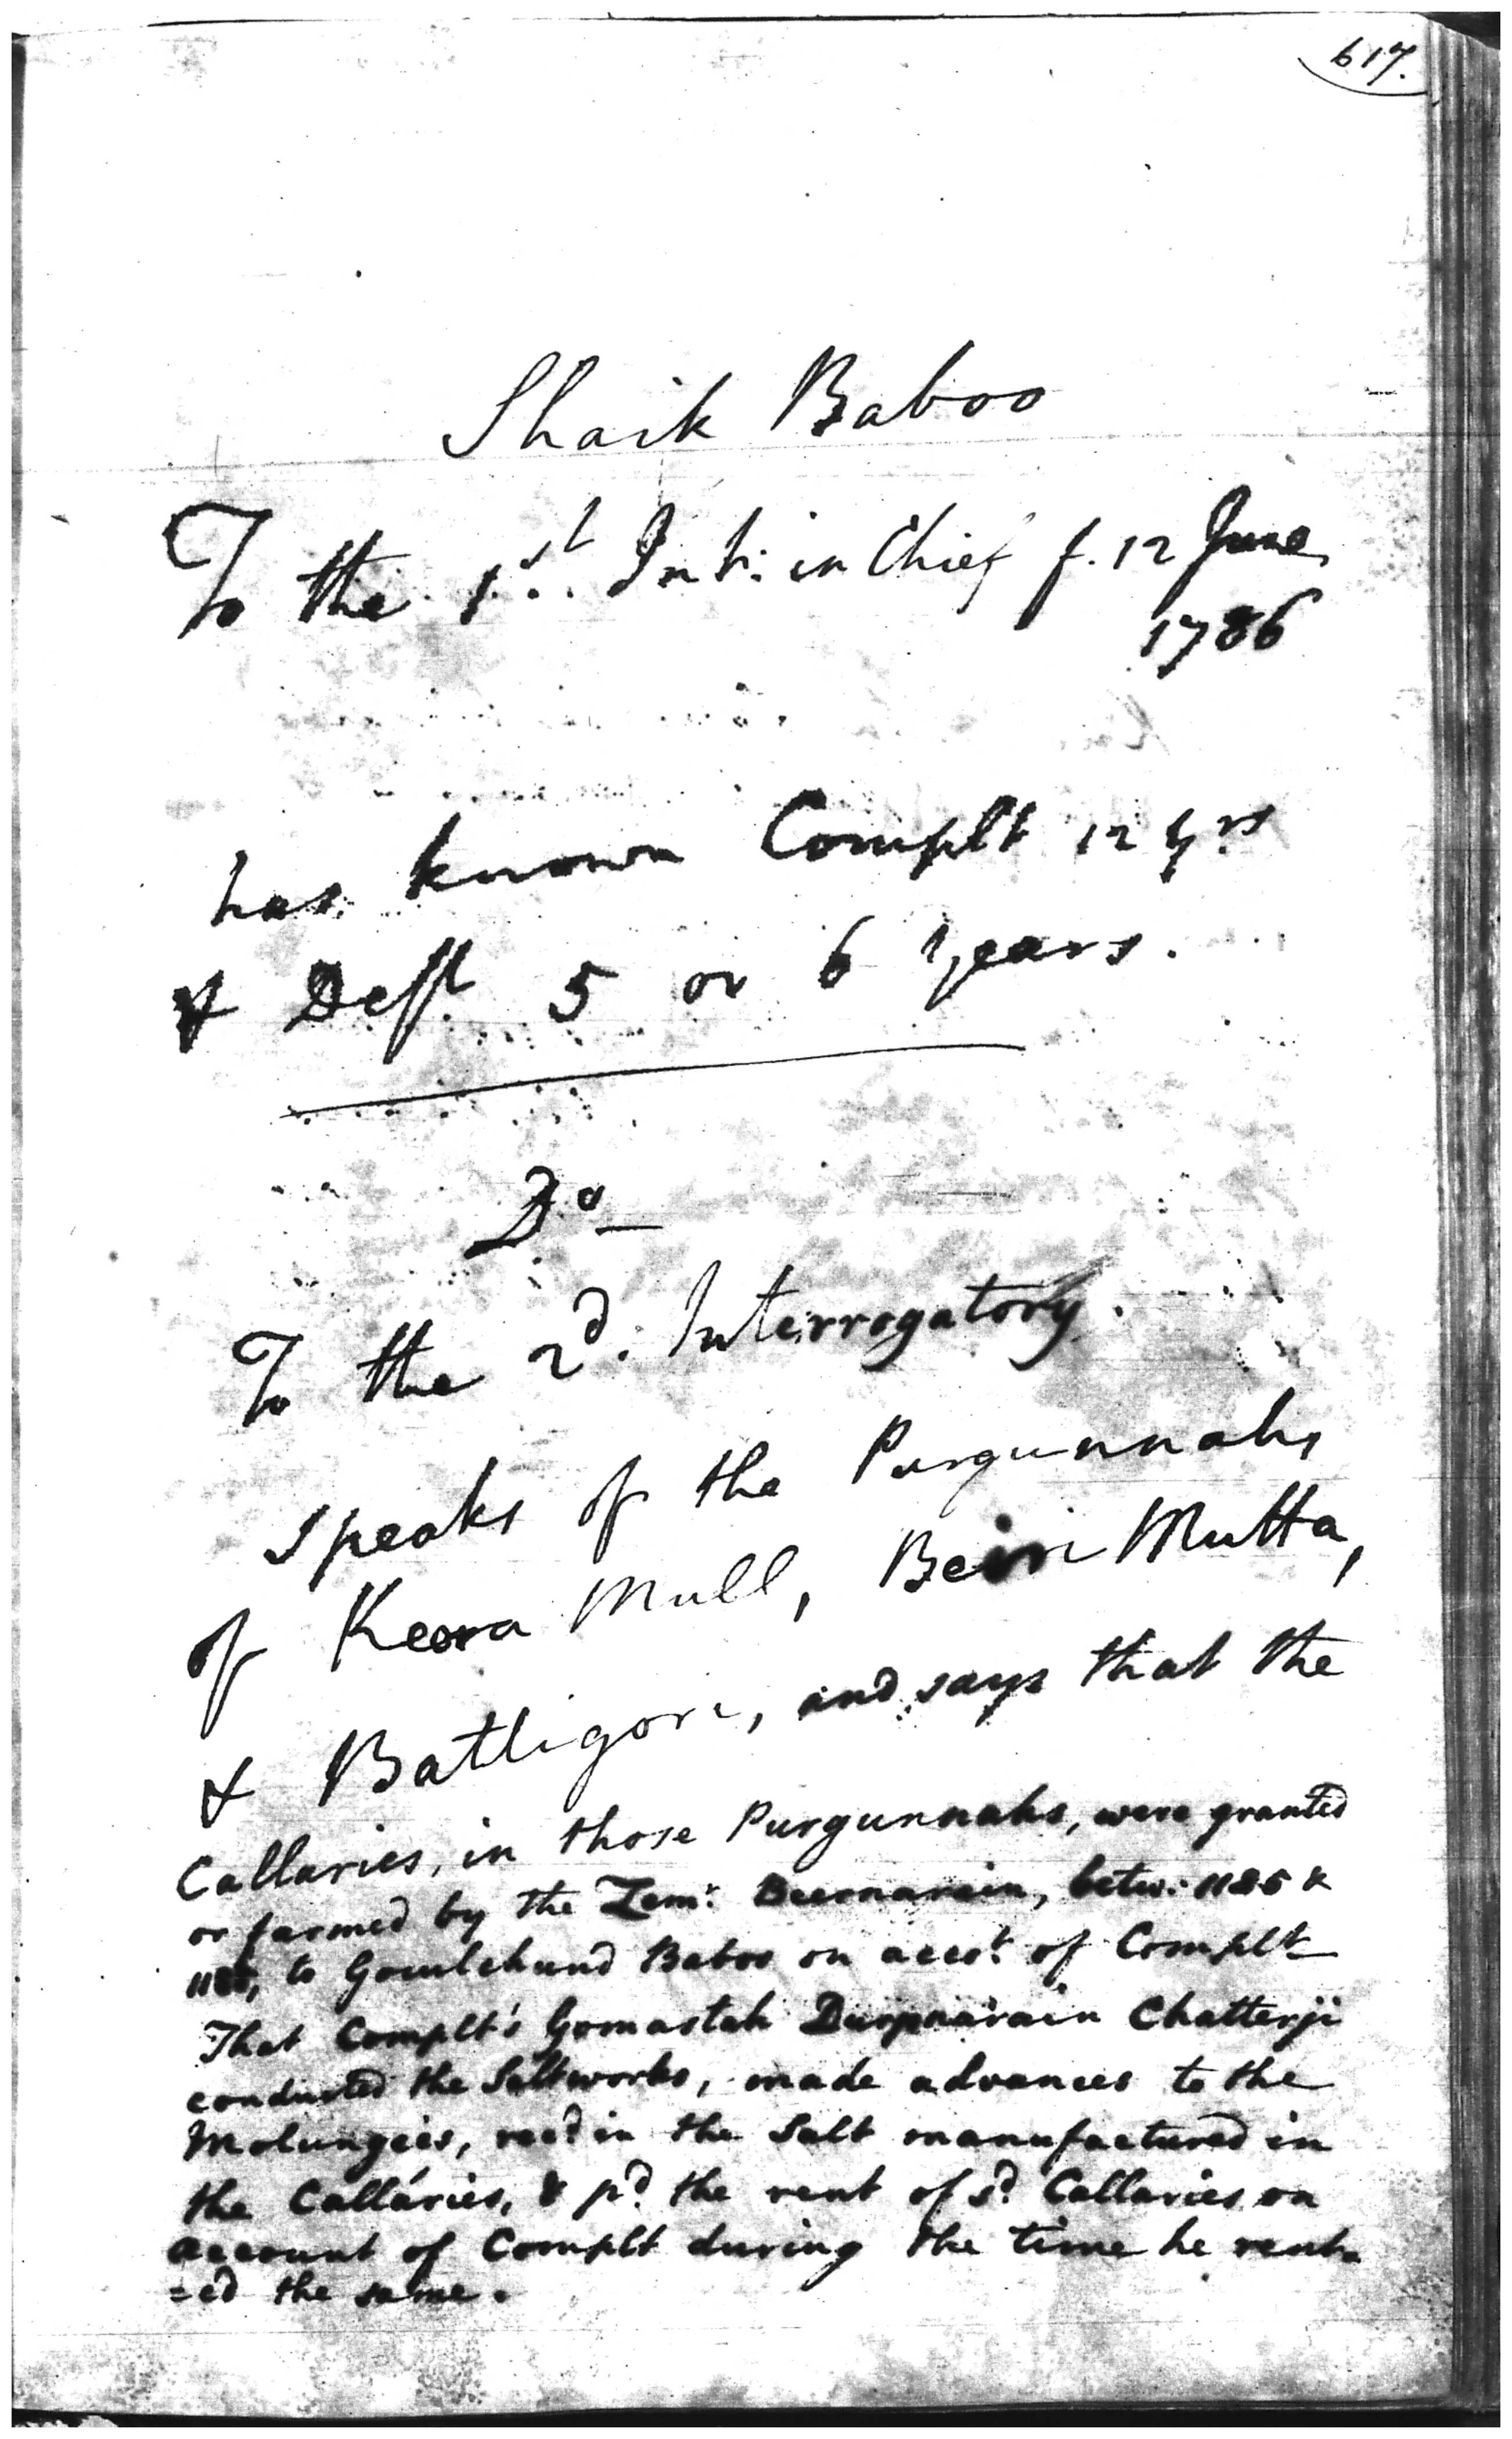 617.
Shaik Baboo
To the 1st. Int: in Chief f. 12 June
1786
has known Complt 12 Yrs
& Deft 5 or 6 Years.
Do
To the 2d. Interrogatory.
Speaks of the Purgunnahs
of Keora Mull, Beiri Mutta,
& Batligori, and says that the
Callaries, in those Purgunnahs, were granted
or farmed by the Zemr. Beernarain, betw: 1185 &
to Gowulchund Baboo on accot. of Complt
That Complt's Gomastah Durpnarain Chatterji
conducted the Saltworks, made advances to the
Molungies, recd in the Salt manufactured in
the Callaries, & pd. the rent of sd. Callaries on
account of Complt during the time he rent=
=ed the same.